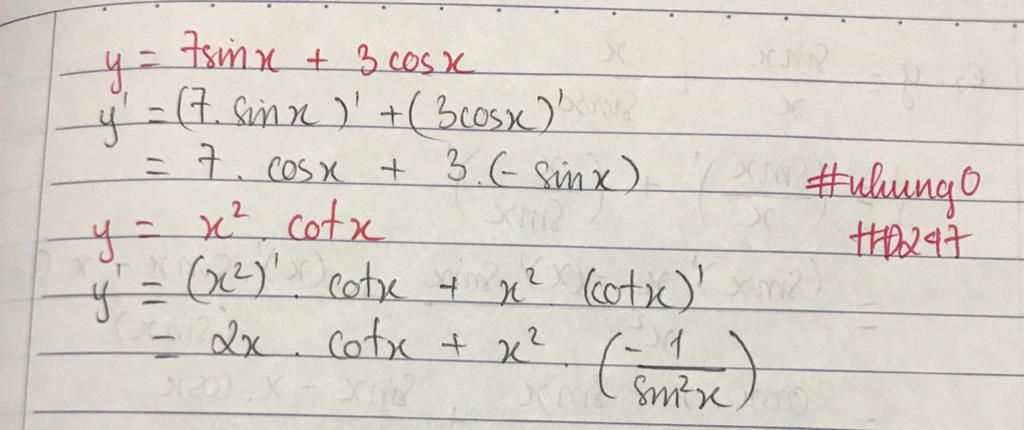 y = 7sinx + 3cosx
y' = (7. sinx)' + (3cosx)'
= 7. cosx + 3.(- sinx)
#nhung0
y = x² cotx
y' = (x²)'. cotx + x² (cotx)'
= 2x. cotx + x². (-1/sin²x)